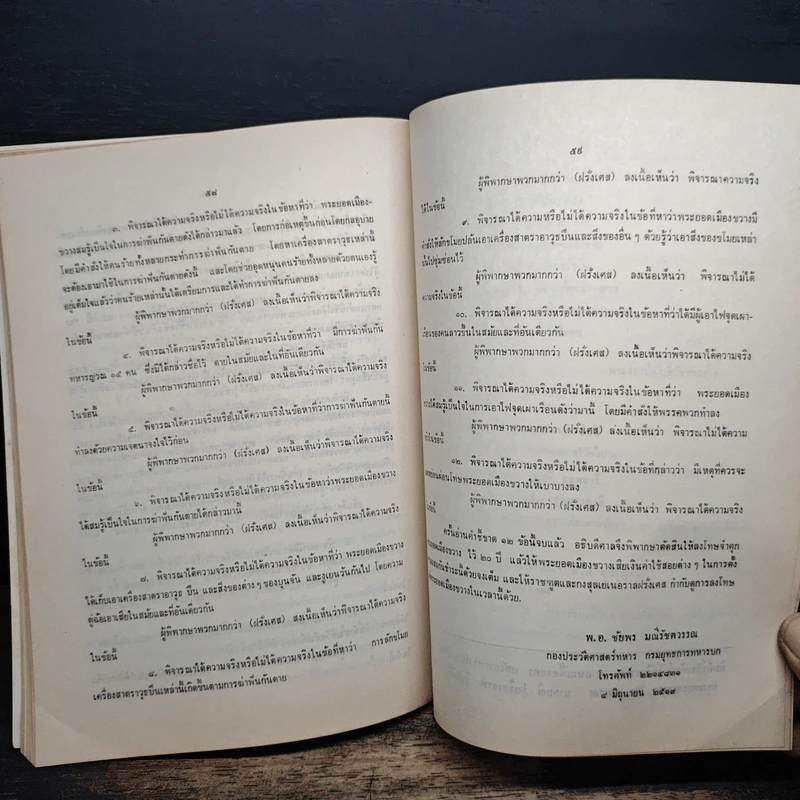 ๕๘
๓. พิจารณาได้ความจริงหรือไม่ได้ความจริงในข้อหาที่ว่า พระยอดเมือง-
ขวางสมรู้เป็นใจในการฆ่าฟันกันตายดังได้กล่าวมาแล้ว โดยการก่อเหตุขึ้นก่อนโดยกลอุบาย
โดยมีคำสั่งให้คนร้ายทั้งหลายกระทำการฆ่าฟันกันตาย โดยหาเครื่องสาตราวุธเหล่านี้
จะต้องเอามาใช้ในการฆ่าฟันกันตายดังนี้ และโดยช่วยอุดหนุนคนร้ายทั้งหลายด้วยตนเองรู้
อยู่เต็มใจแล้วว่าคนร้ายเหล่านั้นได้เตรียมการและได้ทำการฆ่าฟันกันตายลง
ผู้พิพากษาพวกมากกว่า (ฝรั่งเศส) ลงเนื้อเห็นว่าพิจารณาได้ความจริง
ในข้อนี้
๔. พิจารณาได้ความจริงหรือไม่ได้ความจริงในข้อหาที่ว่า มีการฆ่าฟันกัน
ทหารญวณ ๑๕ คน ซึ่งมิได้กล่าวชื่อไว้ ตายในสมัยและในที่อันเดียวกัน
ผู้พิพากษาพวกมากกว่า (ฝรั่งเศส) ลงเนื้อเห็นว่าพิจารณาได้ความจริง
ในข้อนี้
๕. พิจารณาได้ความจริงหรือไม่ได้ความจริงในข้อหาที่ว่าการฆ่าฟันกันตายนี้
ทำลงด้วยความเจตนาจงใจไว้ก่อน
ผู้พิพากษาพวกมากกว่า (ฝรั่งเศส) ลงเนื้อเห็นว่าพิจารณาได้ความจริง
ในข้อนี้
๖. พิจารณาได้ความจริงหรือไม่ได้ความจริงในข้อหาว่าพระยอดเมืองขวาง
ได้สมรู้เป็นใจในการฆ่าฟันกันตายดังได้กล่าวมานี้
ผู้พิพากษาพวกมากกว่า (ฝรั่งเศส) ลงเนื้อเห็นว่าพิจารณาได้ความจริง
ในข้อนี้
๗. พิจารณาได้ความจริงหรือไม่ได้ความจริงในข้อหาที่ว่า พระยอดเมืองขวาง
ได้เก็บเอาเครื่องสาตราอาวุธ ปืน และสิ่งของต่างๆของบุนจัน และงูเยนวันกันไป โดยความ
ตู่ฉ้อเอาเสียในสมัยและที่อันเดียวกัน
ผู้พิพากษาพวกมากกว่า (ฝรั่งเศส) ลงเนื้อเห็นว่าพิจารณาได้ความจริง
ในข้อนี้
๘. พิจารณาได้ความจริงหรือไม่ได้ความจริงในข้อที่หาว่า การลักขโมย
เครื่องสาตราวุธปืนเหล่านี้เกิดขึ้นตามการฆ่าฟันกันตาย
๕๙
ผู้พิพากษาพวกมากกว่า (ฝรั่งเศส) ลงเนื้อเห็นว่า พิจารณาความจริง
ได้ในข้อนี้
๙. พิจารณาได้ความจริงหรือไม่ได้ความจริงในข้อที่หาว่าพระยอดเมืองขวางมี
คำสั่งให้ลักขโมยปล้นเอาเครื่องสาตราอาวุธปืนและสิ่งของอื่นๆ ด้วยรู้ว่าเอาสิ่งของขโมยเหล่า
นี้ไปซุ่มซ่อนไว้
ผู้พิพากษาพวกมากกว่า (ฝรั่งเศส) ลงเนื้อเห็นว่า พิจารณาไม่ได้
ความจริงในข้อนี้
๑๐. พิจารณาได้ความจริงหรือไม่ได้ความจริงในข้อหาที่ว่าได้มีผู้เอาไฟจุดเผา-
เรือนของคนลาวขึ้นในสมัยและที่อันเดียวกัน
ผู้พิพากษาพวกมากกว่า (ฝรั่งเศส) ลงเนื้อเห็นว่า พิจารณาได้ความจริง
ในข้อนี้
๑๑. พิจารณาได้ความจริงหรือไม่ได้ความจริงในข้อหาที่ว่า พระยอดเมือง
ขวางได้สมรู้เป็นใจในการเอาไฟจุดเผาเรือนดังว่ามานี้ โดยมีคำสั่งให้พรรคพวกทำลง
ผู้พิพากษาพวกมากกว่า (ฝรั่งเศส) ลงเนื้อเห็นว่า พิจารณาไม่ได้ความ
จริงในข้อนี้
๑๒. พิจารณาได้ความจริงหรือไม่ได้ความจริงในข้อที่กล่าวว่า มีเหตุที่ควรจะ
ผ่อนโทษพระยอดเมืองขวางให้เบาบางลง
ผู้พิพากษาพวกมากกว่า (ฝรั่งเศส) ลงเนื้อเห็นว่า พิจารณาได้ความจริง
ในข้อนี้
ครั้นอ่านคำชี้ขาด ๑๒ ข้อนี้จบแล้ว อธิบดีศาลจึงพิพากษาตัดสินให้ลงโทษจำคุก
พระยอดเมืองขวาง ไว้ ๒๐ ปี แล้วให้พระยอดเมืองขวางเสียเงินค่าใช้สอยต่างๆ ในการตั้ง
ชำระนี้ด้วยจงเต็ม และให้ราชทูตและกงสุลเยเนอราลฝรั่งเศส กำกับดูการลงโทษ
พระยอดเมืองขวางในเวลานี้ด้วย.
พ.อ. ชัยพร มณีรัชตวรรณ
กองประวัติศาสตร์ทหาร กรมยุทธการทหารบก
โทรศัพท์ ๒๒๑๔๘๓๑
๘ มิถุนายน ๒๕๑๙